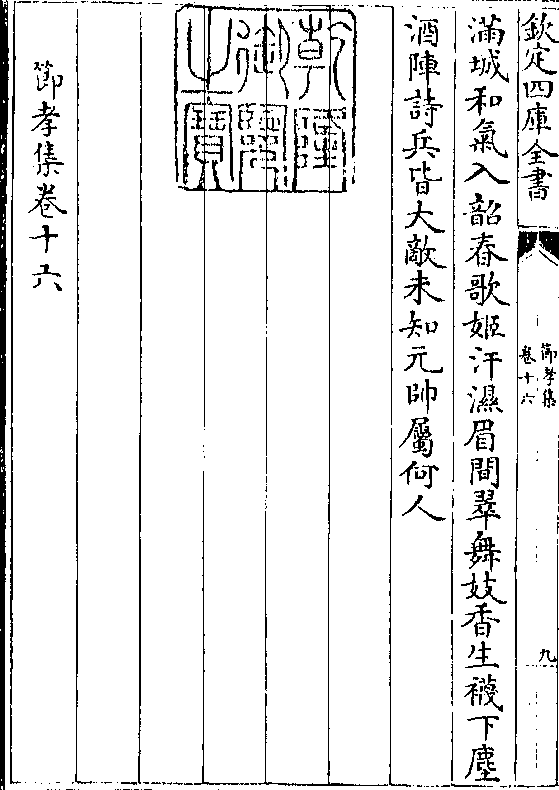 欽定四庫全書
節孝集
卷十六
九
滿城和氣入韶春歌姬汗濕眉間翠舞妓香生襪下塵
酒陣詩兵皆大敵未知元帥屬何人
乾隆御覽之寶
節孝集卷十六